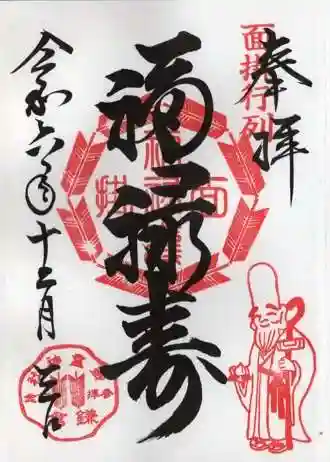 奉拝
面掛行列
福禄寿
令和六年十二月三日